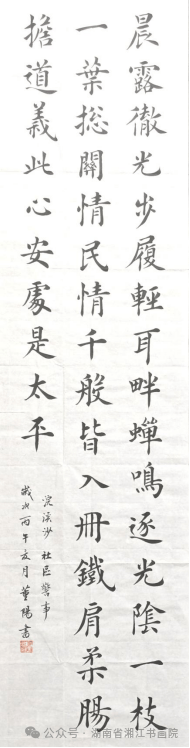 晨露徹光步履輕耳畔蟬鳴逐光陰一枝
一葉總關情民情千般皆入冊鐵肩柔腸
擔道義此心安處是太平
浣溪沙 社區警事
歲次丙午夏月董陽書
公众号·湖南省湘江书画院